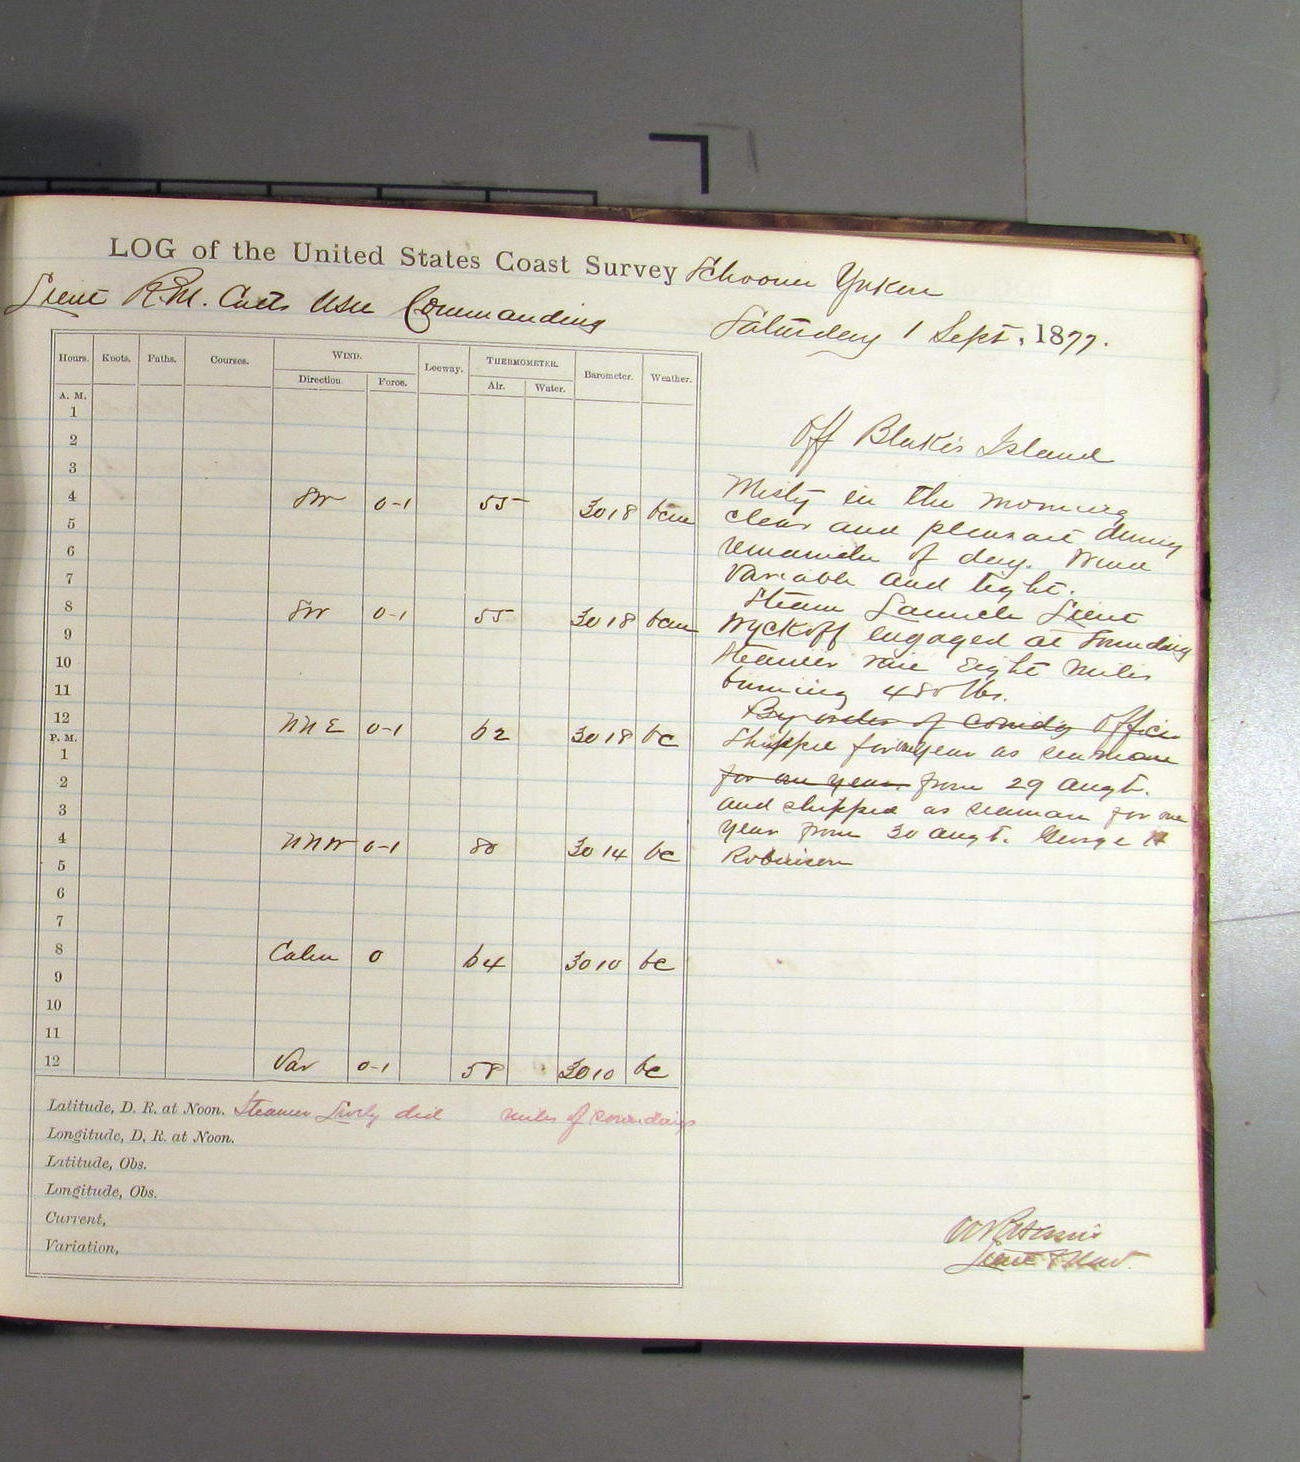 LOG of the United States Coast Survey Schooner Yukon
Lieut R.M. Cutts USN Commanding
Saturday 1 Sept, 1877.
Hours. Knots. Faths. Courses. WIND. Leeway. THERMOMETER. Barometer. Weather.
Direction. Force. Air. Water.
A. M.
1
2
3
4 SW 0-1 55 3018 bcm
5
6
7
8 SW 0-1 55 3018 bcm
9
10
11
12 NNE 0-1 62 3018 bc
P. M.
1
2
3
4 NNW 0-1 80 3014 bc
5
6
7
8 Calm 0 64 3010 bc
9
10
11
12 Var 0-1 58 3010 bc
Latitude, D. R. at Noon. Steamer Lively did miles of soundings
Longitude, D. R. at Noon.
Latitude, Obs.
Longitude, Obs.
Current,
Variation,
Off Blakes Island
Misty in the morning
clear and pleasant during
remainder of day. Wind
Variable and light.
Steam Launch Lieut
Wyckoff engaged at Sounding
Steamer eight miles
burning 480 lbs.
By order of Comdg Officer
Shipped for one year as seaman
for one year from 29 Augt.
and shipped as seaman for one
year from 30 Augt. George H
Robinson
Lieut